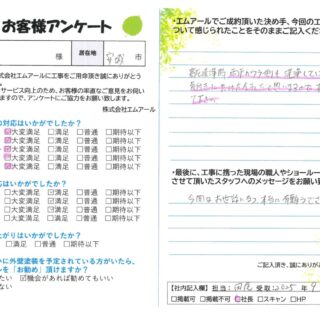 お客様アンケート
様 居在地 安城 市
株式会社エムアールに工事をご用命頂き誠にありがとう
サービス向上のため、お客様の率直なご意見をお伺い
ますので、アンケートにご協力をお願い致します。
株式会社エムアール
の対応はいかがでしたか?
大変満足 □満足 □普通 □期待以下
大変満足 □満足 □普通 □期待以下
大変満足 □満足 □普通 □期待以下
大変満足 □満足 □普通 □期待以下
応はいかがでしたか?
□大変満足 □満足 □普通 □期待以下
□大変満足 満足 □普通 □期待以下
□大変満足 満足 □普通 □期待以下
上がりはいかがでしたか?
足 □満足 □普通 □期待以下
かに外壁塗装を予定されている方がいたら、
ルを「お勧め」頂けますか?
たい 機会があれば勧めてもいい
ない
・エムアールでご成約頂いた決め手、今回の工
ついて感じられたことをそのままご記入くださ
・最後に、工事に携った現場の職人やショールー
させて頂いたスタッフへのメッセージをお願い致
今回はお世話になり、本当に有難うござ
ご記入頂き、誠にありが
【社内記入欄】 担当: 受取:2025 9
□掲載可 □掲載不可 社長 □スキャン □HP